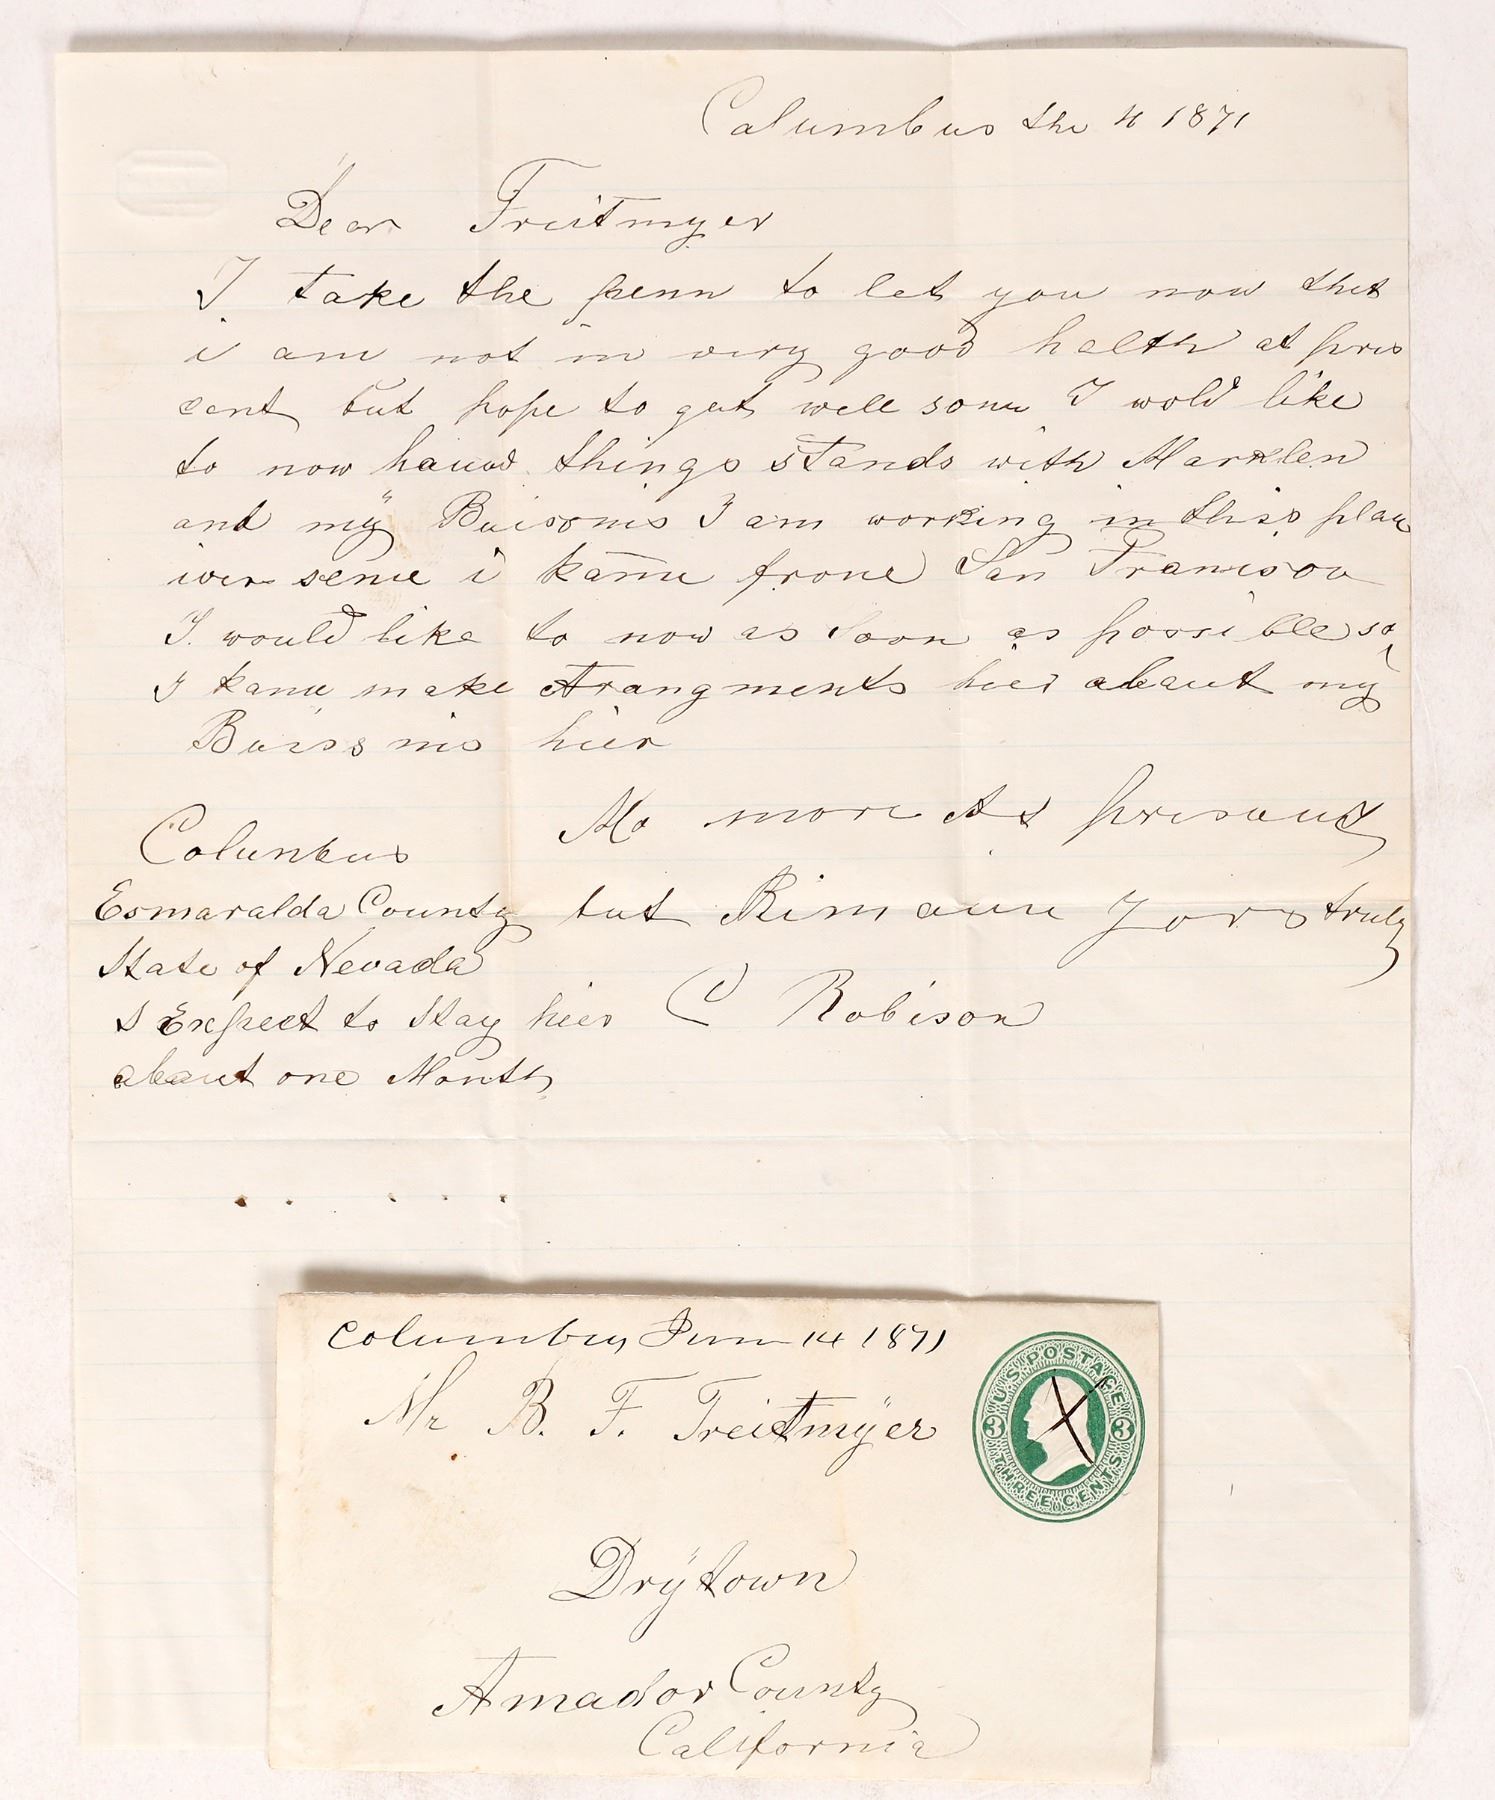 Columbus the 4 1871
Dear Freitmyer
I take the penn to let you now thet
i am not in very good halth at pris
cent but hope to get well sone I wold like
to now hauw things stands with Marklen
and my Buisonis I am working in this place
iver sence i kame frome San Francisco
I would like to now as soon as possible so
I kann make Arangments hier about my
Buissnis hier
No more At prisant
but Rimain Yors truly
C Robison
Columbus
Esmaralda County
State of Nevada
I Expect to Stay hier
about one Month
Columbus Jun 14 1871
Mr B. F. Treitmÿer
Drÿtown
Amador County
California
U.S. POSTAGE
3 3
THREE CENTS